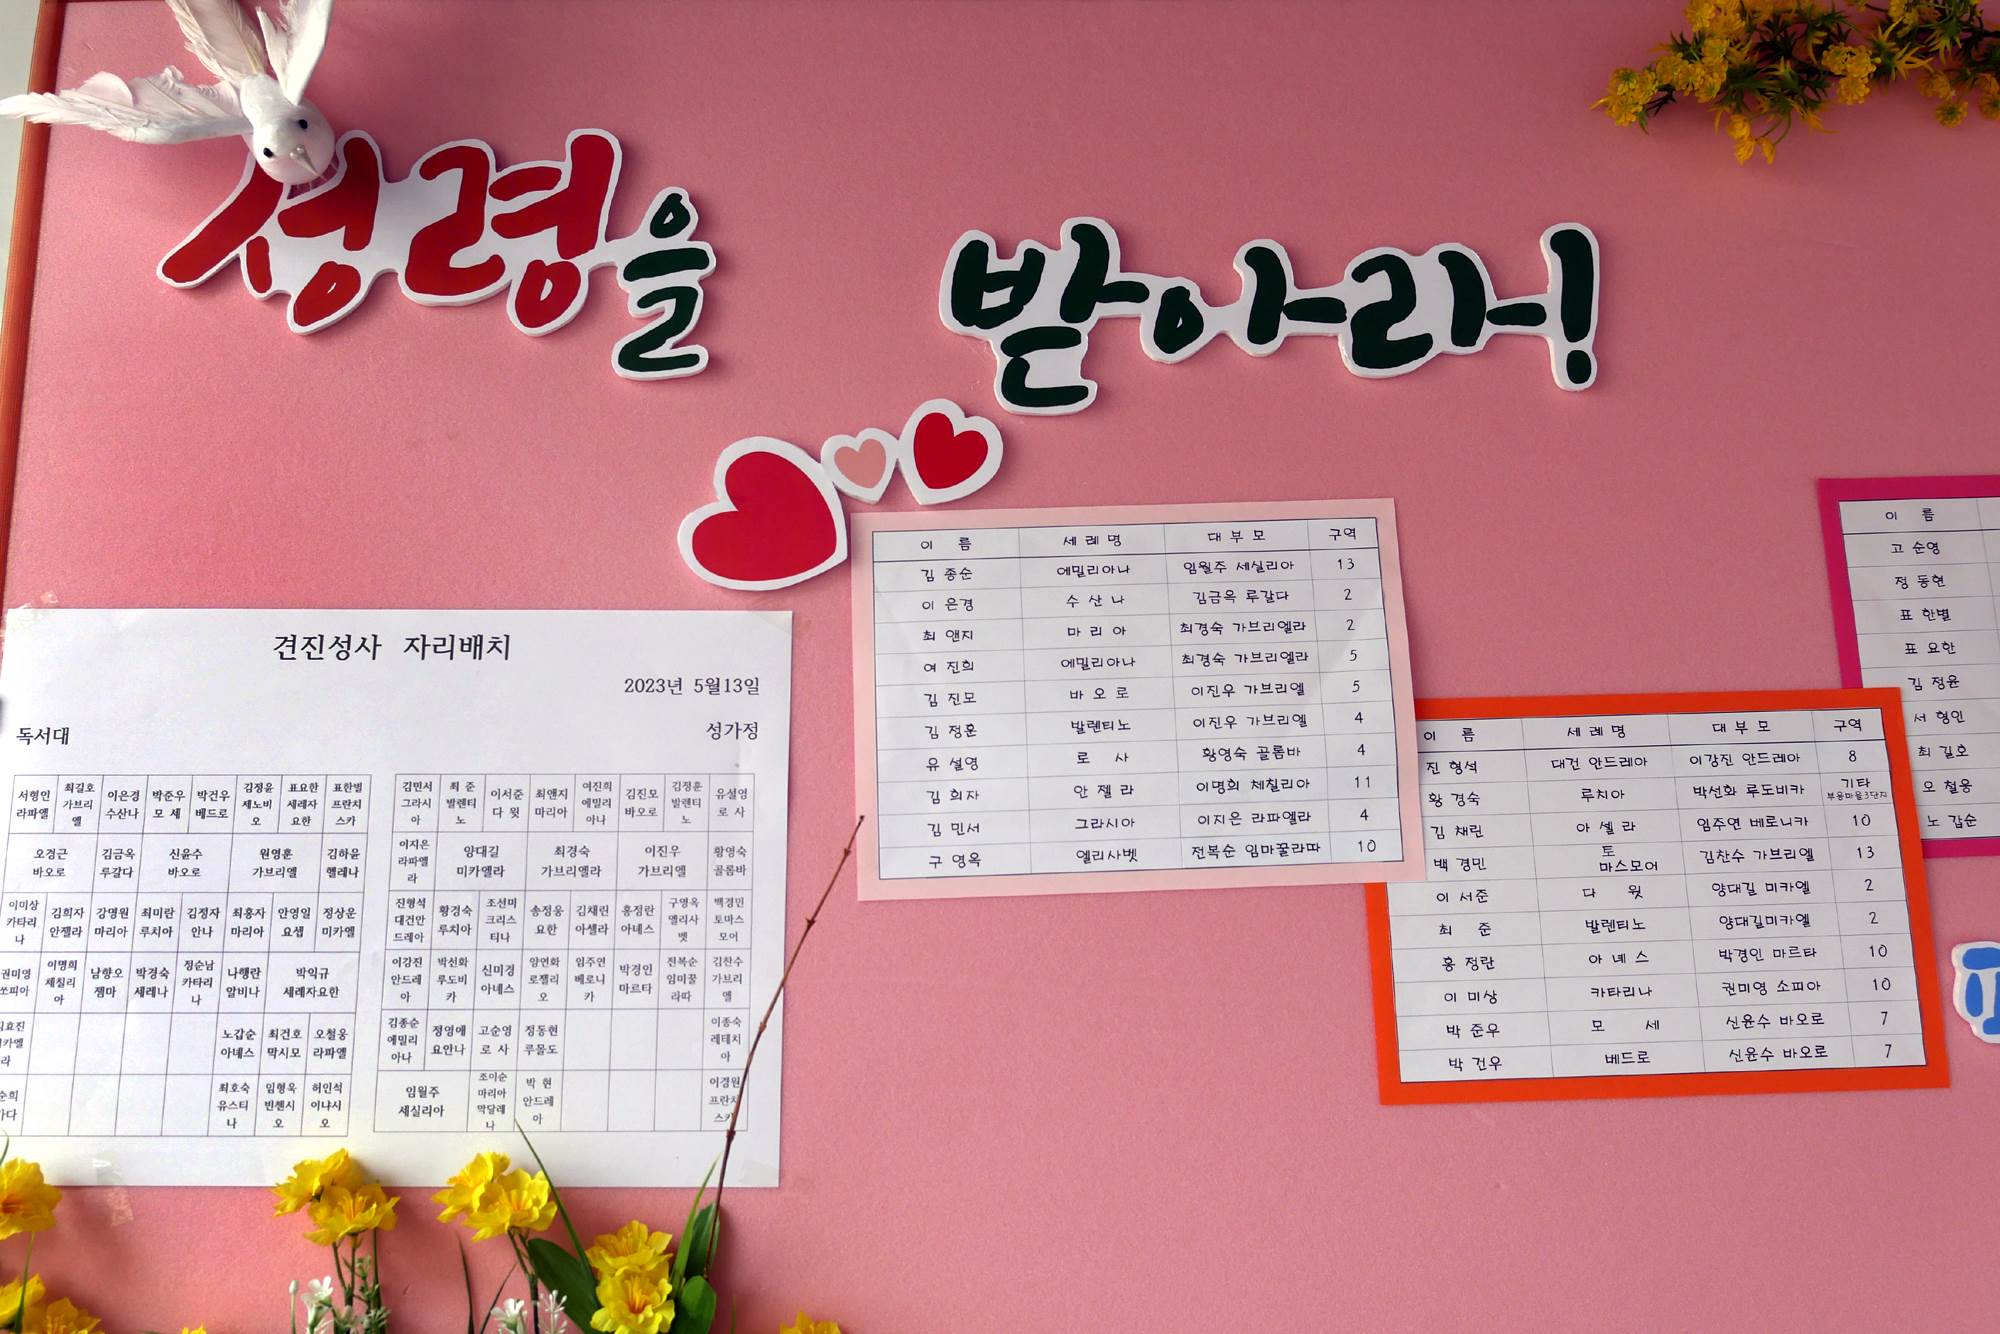 성령을 받아라!
견진성사 자리배치
2023년 5월13일
독서대 성가정
서형인 라파엘 최길호 가브리엘 이은경 수산나 박준우 모 세 박건우 베드로 김정윤 제노비오 표요한 세례자 요한 표한별 프란치스카
오경근 바오로 김금옥 루갈다 신윤수 바오로 원영훈 가브리엘 김하윤 헬레나
이미상 카타리나 김희자 안젤라 강명원 마리아 최미란 루치아 김정자 안나 최홍자 마리아 안영일 요셉 정상운 미카엘
권미영 쏘피아 이명희 체칠리아 남향오 젬마 박경숙 세레나 정순남 카타리나 나행란 알비나 박익규 세례자요한
노갑순 아녜스 최건호 막시모 오철웅 라파엘
최호숙 유스티나 임형욱 빈첸시오 허인석 이냐시오
김민서 그라시아 최 준 발렌티노 이서준 다 윗 최앤지 마리아 여진희 에밀리아나 김진모 바오로 김정훈 발렌티노 유설영 로 사
이지은 라파엘라 양대길 미카엘라 최경숙 가브리엘라 이진우 가브리엘 황영숙 골롬바
진형석 대건안드레아 황경숙 루치아 조선미 크리스티나 송정웅 요한 김채린 아셀라 홍정란 아녜스 구영옥 엘리사벳 백경민 토마스모어
이강진 안드레아 박선화 루도비카 신미경 아녜스 양연화 로젤리오 임주연 베로니카 박경인 마르타 전복순 임미꿀라따 김찬수 가브리엘
김종순 에밀리아나 정영애 요안나 고순영 로 사 정동현 루몰도 이종숙 레테치아
임월주 세실리아 조이순 마리아 막달레나 박 현 안드레아 이경원
이 름 세 례 명 대 부 모 구역
김 종순 에밀리아나 임월주 세실리아 13
이 은경 수 산 나 김금옥 루갈다 2
최 앤지 마 리 아 최경숙 가브리엘라 2
여 진희 에밀리아나 최경숙 가브리엘라 5
김 진모 바 오 로 이진우 가브리엘 5
김 정훈 발렌티노 이진우 가브리엘 4
유 설영 로 사 황영숙 골롬바 4
김 희자 안 젤 라 이명희 체칠리아 11
김 민서 그라시아 이지은 라파엘라 4
구 영옥 엘리사벳 전복순 임마꿀라따 10
이 름 세 례 명 대 부 모 구역
진 형석 대건 안드레아 이강진 안드레아 8
황 경숙 루치아 박선화 루도비카 기타 부용마을3단지
김 채린 아 셀 라 임주연 베로니카 10
백 경민 토마스모어 김찬수 가브리엘 13
이 서준 다 윗 양대길 미카엘 2
최 준 발렌티노 양대길미카엘 2
홍 정란 아 녜 스 박경인 마르타 10
이 미상 카타리나 권미영 소피아 10
박 준우 모 세 신윤수 바오로 7
박 건우 베드로 신윤수 바오로 7
이 름
고 순영
정 동현
표 한별
표 요한
김 정윤
서 형인
최 길호
오 철웅
노 갑순